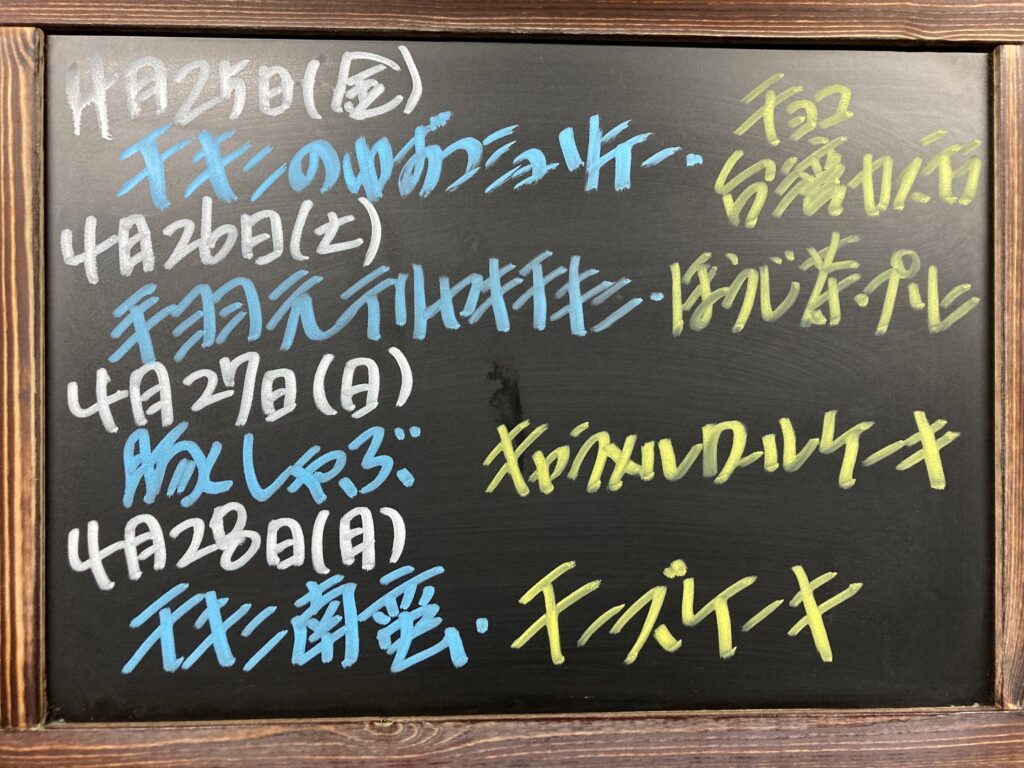 4月25日(金)
チキンのゆずコショウソテー・
チョコ
台湾カステラ
4月26日(土)
手羽元テリヤキチキン・ほうじ茶プリン
4月27日(日)
豚しゃぶ キャラメルロールケーキ
4月28日(月)
チキン南蛮・チーズケーキ